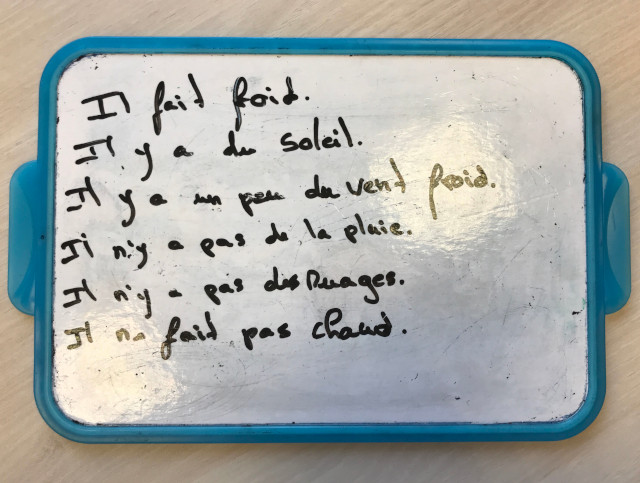 Il fait froid.
Il y a du soleil.
Il y a un peu du vent froid.
Il n'y a pas de la pluie.
Il n'y a pas des nuages.
Il ne fait pas chaud.